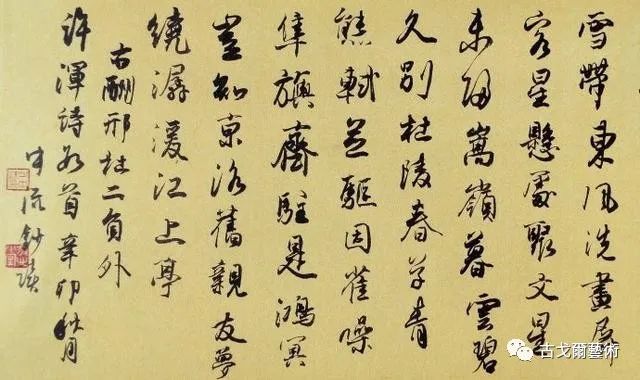 雪帶東風洗畫屏
客星懸處聚文星
未歸嵩嶺暮雲碧
久別杜陵春草青
熊軾並驅因雀噪
隼旟齊駐是鴻冥
豈知京洛舊親友夢
繞潺湲江上亭
右酬邢杜二員外
許渾詩首辛卯秋月
流鈔
古戈爾藝術